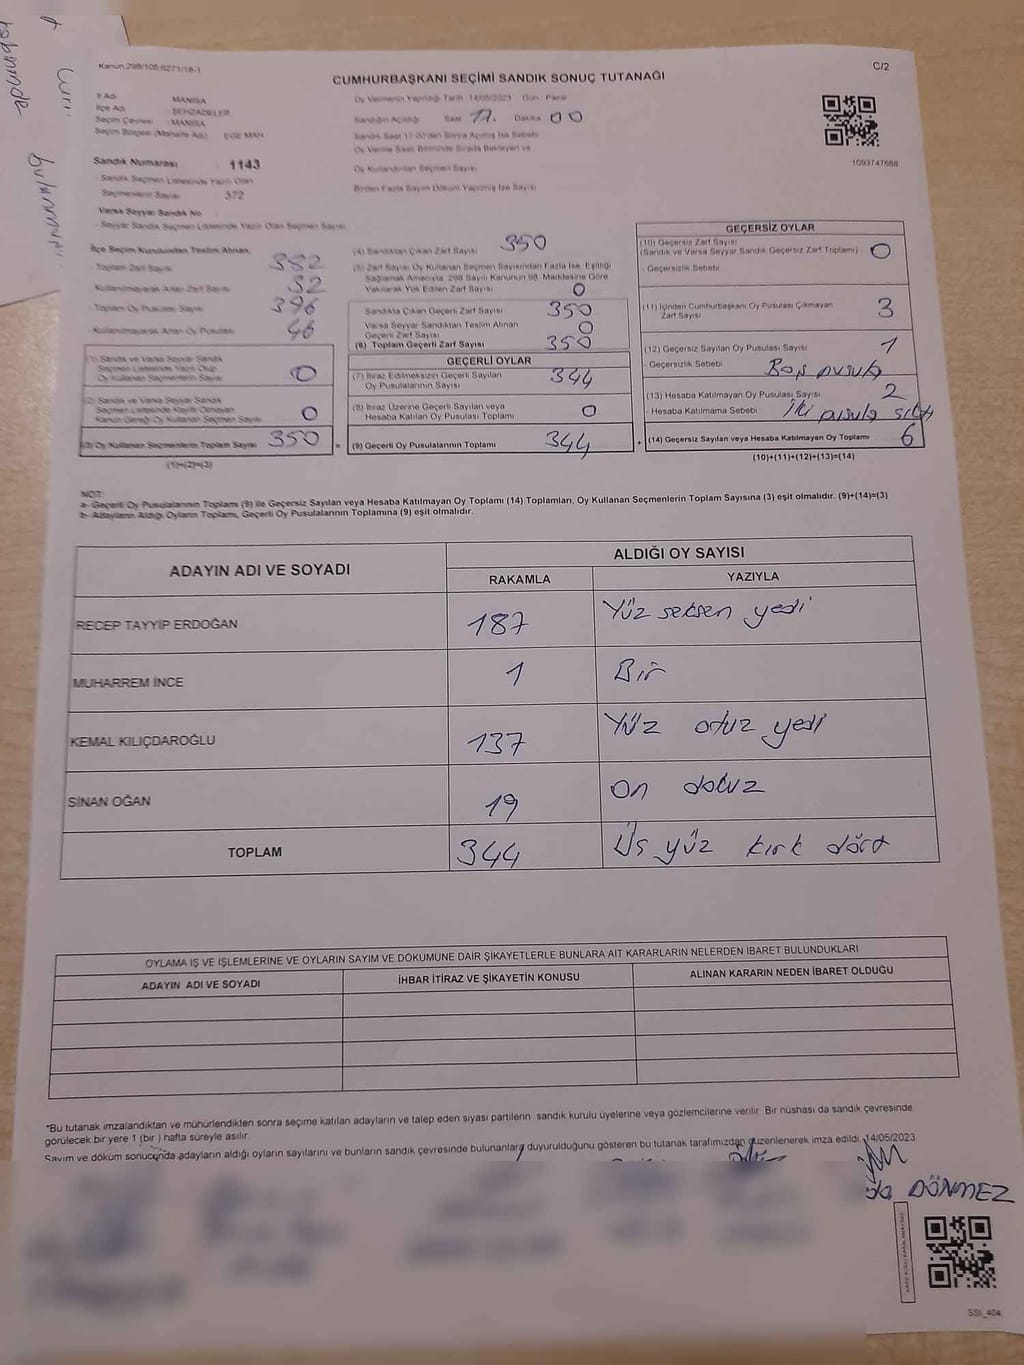 Kanun 298/105,6271/18-1
C/2
CUMHURBAŞKANI SEÇİMİ SANDIK SONUÇ TUTANAĞI
İl Adı MANİSA
İlçe Adı ŞEHZADELER
Seçim Çevresi : MANİSA
Seçim Bölgesi (Mahalle Adı) EGE MAH
Sandık Numarası : 1143
- Sandık Seçmen Listesinde Yazılı Olan
Seçmenlerin Sayısı 372
Varsa Seyyar Sandık No
- Seyyar Sandık Seçmen Listesinde Yazılı Olan Seçmen Sayısı
Oy Vermenin Yapıldığı Tarih 14/05/2023 Gün : Pazar
Sandığın Açıldığı Saat 17. Dakika 00
Sandık Saat 17:00'den Sonra Açılmış İse Sebebi
Oy Verme Saati Bitiminde Sırada Bekleyen ve
Oy Kullandırılan Seçmen Sayısı
Birden Fazla Sayım Döküm Yapılmış İse Sayısı
1093747688
İlçe Seçim Kurulundan Teslim Alınan;
- Toplam Zarf Sayısı 382
- Kullanılmayarak Artan Zarf Sayısı 32
- Toplam Oy Pusulası Sayısı 396
- Kullanılmayarak Artan Oy Pusulası 46
(1) Sandık ve Varsa Seyyar Sandık
Seçmen Listesinde Yazılı Olup
Oy Kullanan Seçmenlerin Sayısı 0
(2) Sandık ve Varsa Seyyar Sandık
Seçmen Listesinde Kayıtlı Olmayan
Kanun Gereği Oy Kullanan Seçmenlerin Sayısı 0
(3) Oy Kullanan Seçmenlerin Toplam Sayısı 350 =
(1)+(2)=(3)
(4) Sandıktan Çıkan Zarf Sayısı 350
(5) Zarf Sayısı Oy Kullanan Seçmen Sayısından Fazla İse, Eşitliği
Sağlamak Amacıyla, 298 Sayılı Kanunun 98. Maddesine Göre
Yakılarak Yok Edilen Zarf Sayısı 0
Sandıkta Çıkan Geçerli Zarf Sayısı 350
Varsa Seyyar Sandıktan Teslim Alınan
Geçerli Zarf Sayısı 0
(6) Toplam Geçerli Zarf Sayısı 350
GEÇERLİ OYLAR
(7) İtiraz Edilmeksizin Geçerli Sayılan
Oy Pusulalarının Sayısı 344
(8) İtiraz Üzerine Geçerli Sayılan veya
Hesaba Katılan Oy Pusulası Toplamı 0
(9) Geçerli Oy Pusulalarının Toplamı 344 +
GEÇERSİZ OYLAR
(10) Geçersiz Zarf Sayısı
(Sandık ve Varsa Seyyar Sandık Geçersiz Zarf Toplamı) 0
- Geçersizlik Sebebi
(11) İçinden Cumhurbaşkanı Oy Pusulası Çıkmayan
Zarf Sayısı 3
(12) Geçersiz Sayılan Oy Pusulası Sayısı 1
- Geçersizlik Sebebi Boş pusula
(13) Hesaba Katılmayan Oy Pusulası Sayısı 2
- Hesaba Katılmama Sebebi İki pusula çıktı
(14) Geçersiz Sayılan veya Hesaba Katılmayan Oy Toplamı 6
(10)+(11)+(12)+(13)=(14)
NOT:
a- Geçerli Oy Pusulalarının Toplamı (9) ile Geçersiz Sayılan veya Hesaba Katılmayan Oy Toplamı (14) Toplamları, Oy Kullanan Seçmenlerin Toplam Sayısına (3) eşit olmalıdır. (9)+(14)=(3)
b- Adayların Aldığı Oyların Toplamı, Geçerli Oy Pusulalarının Toplamına (9) eşit olmalıdır.
ADAYIN ADI VE SOYADI
ALDIĞI OY SAYISI
RAKAMLA YAZIYLA
RECEP TAYYİP ERDOĞAN 187 Yüz seksen yedi
MUHARREM İNCE 1 Bir
KEMAL KILIÇDAROĞLU 137 Yüz otuz yedi
SİNAN OĞAN 19 On dokuz
TOPLAM 344 Üç yüz kırk dört
OYLAMA İŞ VE İŞLEMLERİNE VE OYLARIN SAYIM VE DÖKÜMÜNE DAİR ŞİKAYETLERLE BUNLARA AİT KARARLARIN NELERDEN İBARET BULUNDUKLARI
ADAYIN ADI VE SOYADI İHBAR İTİRAZ VE ŞİKAYETİN KONUSU ALINAN KARARIN NEDEN İBARET OLDUĞU
*Bu tutanak imzalandıktan ve mühürlendikten sonra seçime katılan adayların ve talep eden siyasi partilerin sandık kurulu üyelerine veya gözlemcilerine verilir. Bir nüshası da sandık çevresinde
görülecek bir yere 1 (bir) hafta süreyle asılır.
Sayım ve döküm sonucunda adayların aldığı oyların sayılarını ve bunların sandık çevresinde bulunanlara duyurulduğunu gösteren bu tutanak tarafımızdan düzenlenerek imza edildi. 14/05/2023
DÖNMEZ
SSİ_404